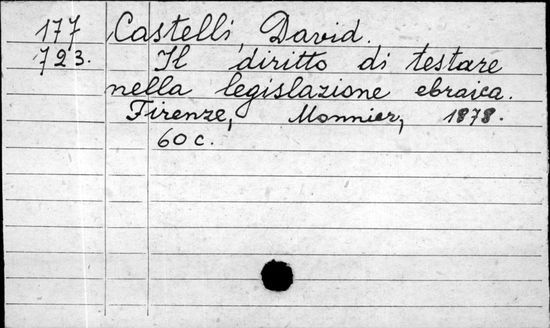 177 Castelli, David.
723. Il diritto di testare
nella legislazione ebraica.
Firenze, Monnier, 1878.
60 c.